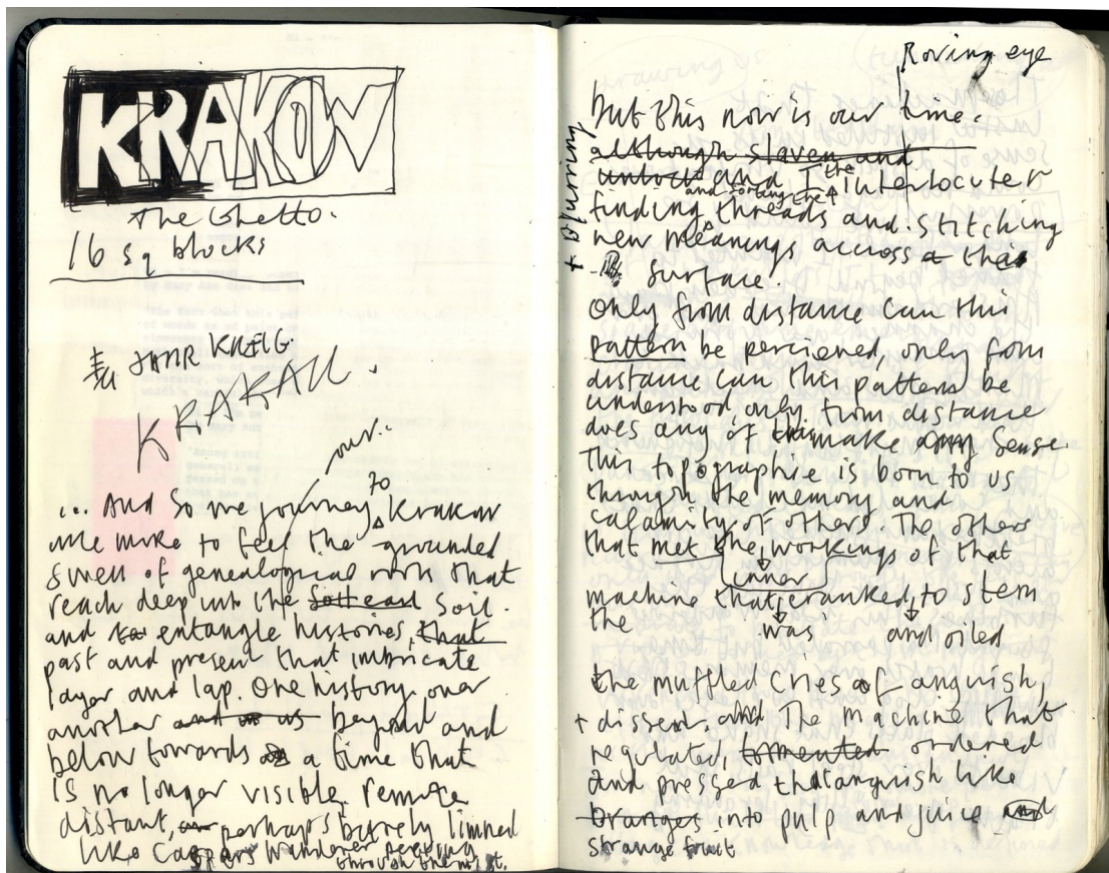 KRAKOW
The Ghetto.
16 sq blocks
KRAKALL.
our..
... And so we journey to Krakow
we move to feel the grounded
swell of genealogical roots that
reach deep into the soil.
and entangle histories, that
past and present that imbricate
layer and lap. One history over
another and us beyond and
below towards a time that
is no longer visible. remote
distant, perhaps barely limned
like Caspars Wanderer peering
through the mist.
Roving eye
but this now is our time.
although slaven and
unlock and I the Interlocuter
and sorting the
finding threads and stitching
new meanings across a that
+ blurring
surface.
only from distance can this
pattern be percieved, only from
distance can this pattern be
understood only from distance
does any of this make any sense.
This topographie is born to us
through the memory and
calamity of others. The others
that met the workings of that
inner
machine that cranked, to stem
the was and oiled
the muffled cries of anguish,
+ dissent and the machine that
regulated, tormented ordered
and pressed that anguish like
oranges into pulp and juice and
strange fruit